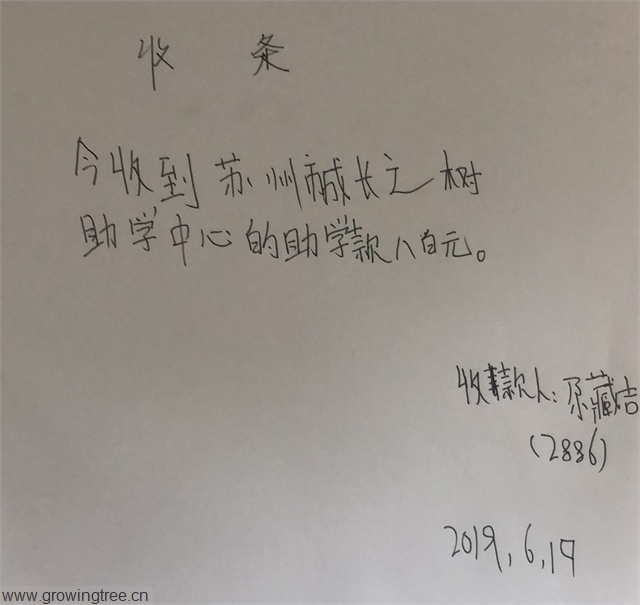 收 条
今收到苏州市成长之树
助学中心的助学款八百元。
收款人:尕藏吉
(2886)
2019,6,19
www.growingtree.cn